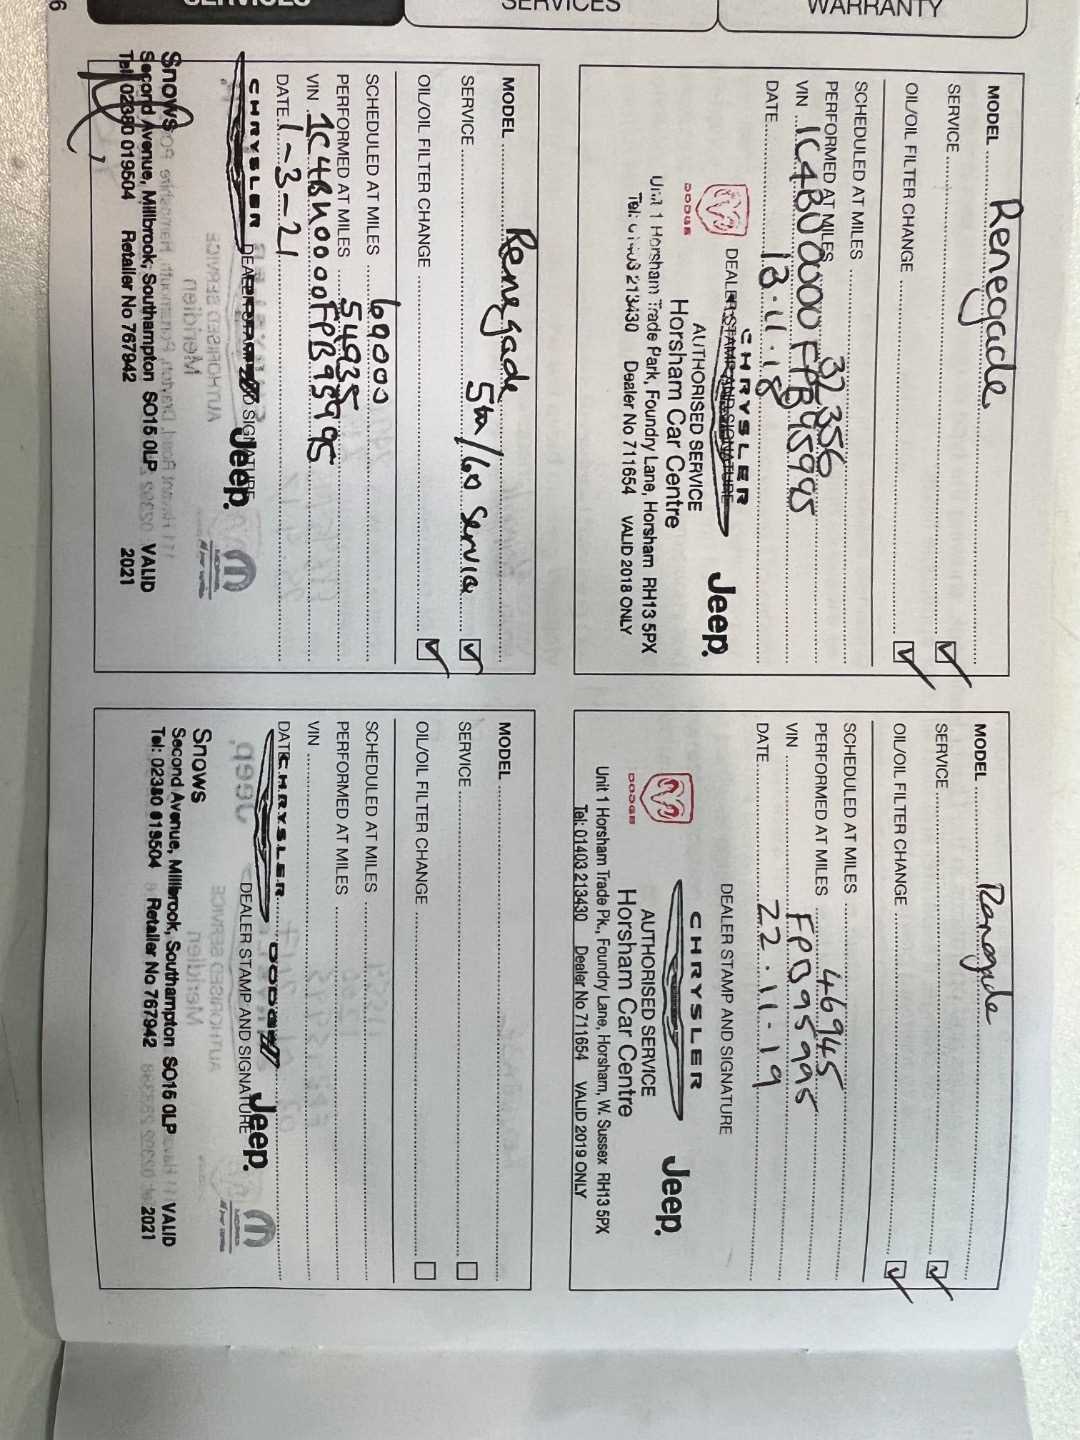 SERVICES
SERVICES
WARRANTY
6
MODEL Renegade
SERVICE
OIL/OIL FILTER CHANGE
SCHEDULED AT MILES
PERFORMED AT MILES 32356
VIN 1C4BU0000FPB95995
DATE 13.11.18
DEALER STAMP AND SIGNATURE
CHRYSLER
DODGE
Jeep
AUTHORISED SERVICE
Horsham Car Centre
Unit 1 Horsham Trade Park, Foundry Lane, Horsham RH13 5PX
Tel: 01403 213430 Dealer No 711654 VALID 2018 ONLY
MODEL Renegade
SERVICE
OIL/OIL FILTER CHANGE
SCHEDULED AT MILES
PERFORMED AT MILES 46945
VIN FPB95995
DATE 22.11.19
DEALER STAMP AND SIGNATURE
CHRYSLER
DODGE
Jeep.
AUTHORISED SERVICE
Horsham Car Centre
Unit 1 Horsham Trade Pk., Foundry Lane, Horsham, W. Sussex RH13 5PX
Tel: 01403 213430 Dealer No 711654 VALID 2019 ONLY
MODEL Renegade
SERVICE 5th/60 Service
OIL/OIL FILTER CHANGE
SCHEDULED AT MILES 60000
PERFORMED AT MILES 54935
VIN 1C4BU0000FPB95995
DATE 1-3-21
DEALER STAMP AND SIGNATURE
CHRYSLER
Jeep.
Snows
Second Avenue, Millbrook, Southampton SO15 0LP VALID
Tel: 02380 019504 Retailer No 767942 2021
MODEL
SERVICE
OIL/OIL FILTER CHANGE
SCHEDULED AT MILES
PERFORMED AT MILES
VIN
DATE
DEALER STAMP AND SIGNATURE
CHRYSLER
DODGE
Jeep.
Snows
Second Avenue, Millbrook, Southampton SO15 0LP VALID
Tel: 02380 019504 Retailer No 767942 2021